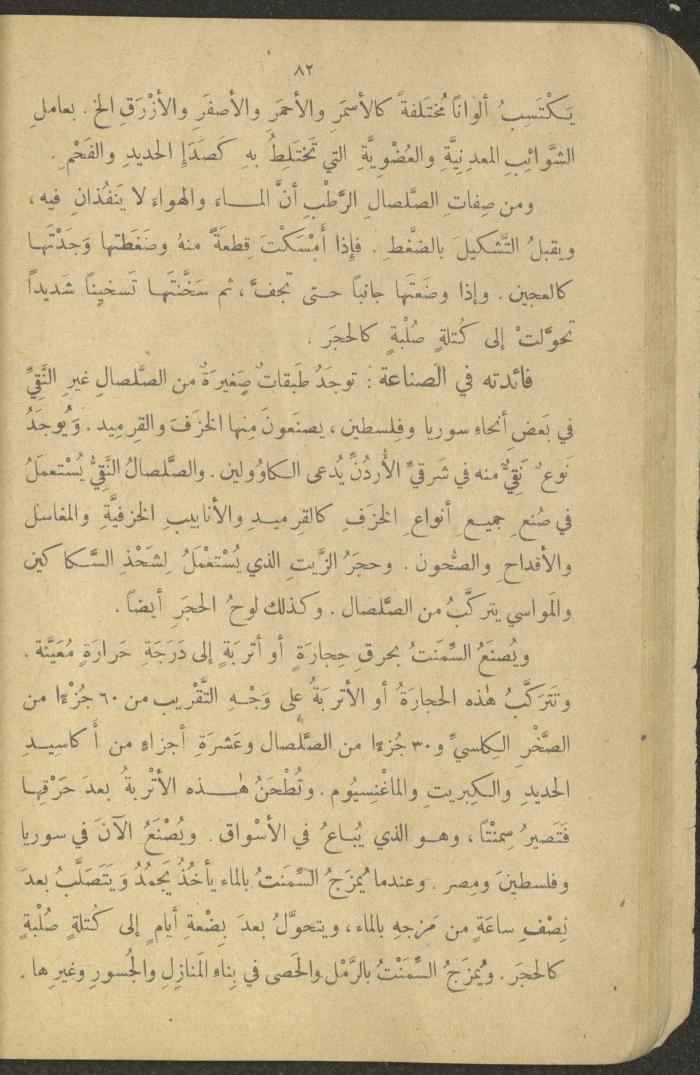 ٨٢
يَكْتَسِبُ ألوانًا مُختَلفةً كالأسمَرِ والأحمَرِ والأصفَرِ والأزْرَقِ الخ . بعاملِ
الشَّوائِبِ المعدِنِيَّةِ والعُضْوِيَّةِ التي تَختَلِطُ بهِ كَصَدَإِ الحديدِ والفَحْمِ .
ومن صِفاتِ الصَّلصالِ الرَّطْبِ أنَّ المـاءَ والهواءَ لا يَنفُذانِ فيه ،
ويقبلُ التَّشكيلَ بالضَّغطِ . فإِذا أَمْسَكْتَ قِطعَةً منهُ وضَغَطتَها وَجَدْتَها
كالعجين . وإذا وضَعَتَها جانباً حتى تَجفَّ ، ثم سَخَّنتَها تَسخيناً شَديداً
تحوَّلتْ إلى كُتلةٍ صُلْبةٍ كالحجَر .
فائدته في الصناعة : توجَدُ طَبقاتٌ صَغيرَةٌ من الصَّلصالِ غيرِ النَّقيِّ
في بَعضِ أنحاءِ سوريا وفِلسطين ، يصنَعونَ مِنها الخزَفَ والقرميد . وَيُوجَدُ
نَوعٌ نَقِيٌّ منه في شَرقيِّ الأُردُنِّ يُدعى الكاوُولين . والصَّلصالُ النَّقِيُّ يُسْتعمَلُ
في صُنعِ جميعِ أنواعِ الخزَفِ كالقرميدِ والأنابيبِ الخزفيَّةِ والمغاسل
والأقداحِ والصُّحون . وحجَرُ الزَّيتِ الذي يُسْتَعْمَلُ لِشَحْذِ السَّكاكين
والمَواسي يتركَّبُ من الصَّلصال . وكذلك لوحُ الحجَر أيضاً .
ويُصنَعُ السِّمَنتُ بحرقِ حِجارَةٍ أو أتربَةٍ إلى دَرَجَةِ حَرارَةٍ مُعَيَّنة .
وتَتَركَّبُ هٰذه الحجارَةُ أو الأتربَةُ على وَجْهِ التَّقْريب من ٦٠ جُزْءًا من
الصَّخْرِ الكِلسيِّ و٣٠ جُزءًا من الصَّلصال وعَشرَةِ أجزاءٍ من أكاسيدِ
الحديدِ والكِبريتِ والماغْنِسيُوم . وتُطْحَنُ هٰذه الأتْربةُ بعدَ حَرْقِها
فَتَصيرُ سِمنْتاً ، وهو الذي يُباعُ في الأسْواق . ويُصْنَعُ الآنَ في سوريا
وفلسطينَ ومِصر . وعندما يُمزَجُ السِّمَنتُ بالماء يأخُذُ يَجمُدُ وَيَتَصَلَّبُ بعدَ
نِصْفِ ساعَةٍ من مَزجهِ بالماء ، ويتحوَّلُ بعدَ بِضْعةِ أيامٍ إلى كُتلةٍ صُلبةٍ
كالحجَر . ويُمزَجُ السِّمَنْتُ بالرَّمْل والحَصى في بِناءِ المَنازِلِ والجُسورِ وغيرِها .